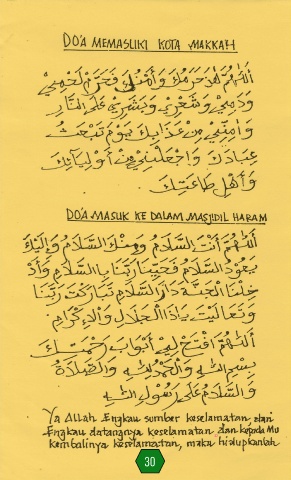 DO'A MEMASUKI KOTA MAKKAH
اَللّٰهُمَّ هٰذَا حَرَمُكَ وَأَمْنُكَ فَحَرِّمْ لَحْمِيْ
وَدَمِيْ وَشَعْرِيْ وَبَشَرِيْ عَلَى النَّارِ
وَاٰمِنِّيْ مِنْ عَذَابِكَ يَوْمَ تَبْعَثُ
عِبَادَكَ وَاجْعَلْنِيْ مِنْ أَوْلِيَائِكَ
وَأَهْلِ طَاعَتِكَ
DO'A MASUK KE DALAM MASJIDIL HARAM
اَللّٰهُمَّ أَنْتَ السَّلَامُ وَمِنْكَ السَّلَامُ وَإِلَيْكَ
يَعُوْدُ السَّلَامُ فَحَيِّنَا رَبَّنَا بِالسَّلَامِ وَأَدْ
خِلْنَا الْجَنَّةَ دَارَ السَّلَامِ تَبَارَكْتَ رَبَّنَا
وَتَعَالَيْتَ يَاذَا الْجَلَالِ وَالْإِكْرَامِ
اَللّٰهُمَّ افْتَحْ لِيْ أَبْوَابَ رَحْمَتِكَ
بِسْمِ اللهِ وَالْحَمْدُ لِلّٰهِ وَالصَّلَاةُ
وَالسَّلَامُ عَلَى رَسُوْلِ اللهِ
Ya Allah Engkau sumber keselamatan dari
Engkau datangnya keselamatan dan kepada Mu
kembalinya keselamatan, maka hidupkanlah
30